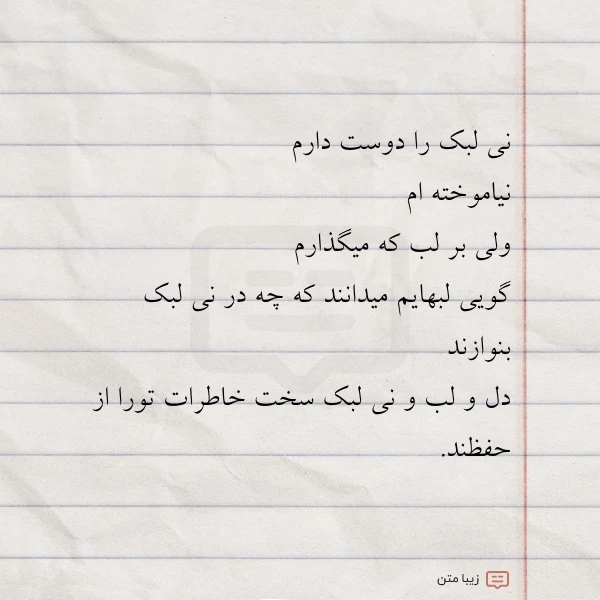 نی لبک را دوست دارم
نیاموخته ام
ولی بر لب که میگذارم
گویی لبهایم میدانند که چه در نی لبک
بنوازند
دل و لب و نی لبک سخت خاطرات تورا از
حفظند.
زیبا متن